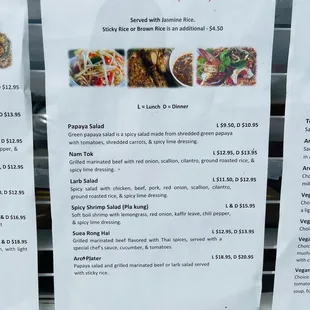 Served with Jasmine Rice.
Sticky Rice or Brown Rice is an additional - $4.50
L = Lunch D = Dinner
Papaya Salad L $9.50, D $10.95
Green papaya salad is a spicy salad made from shredded green papaya
with tomatoes, shredded carrots, & spicy lime dressing.
Nam Tok L $12.95, D $13.95
Grilled marinated beef with red onion, scallion, cilantro, ground roasted rice, &
spicy lime dressing.
Larb Salad L $11.50, D $12.95
Spicy salad with chicken, beef, pork, red onion, scallion, cilantro,
ground roasted rice, & spicy lime dressing.
Spicy Shrimp Salad (Pla kung) L & D $15.95
Soft boil shrimp with lemongrass, red onion, kaffir leave, chili pepper,
& spicy lime dressing.
Suea Rong Hai L $12.95, D $13.95
Grilled marinated beef flavored with Thai spices, served with a
special chef's sauce, cucumber, & tomatoes.
Aroi Plater L $18.95, D $20.95
Papaya salad and grilled marinated beef or larb salad served
with sticky rice.
D $12.95
D $13.95
D $12.95
pepper, &
D $12.95
D $12.95
& D $16.95
& D $13.95
, with light